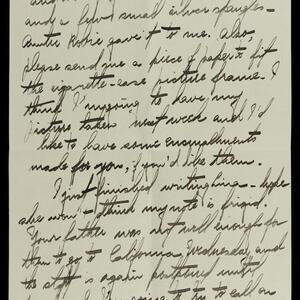 and a few small silver spangles -
Auntie gave it to me. Also,
please send me a piece of paper to fit
the cigarette-case picture frame. I
think I'm going to have my
picture taken next week and I'd
like to have some enlargements
made for you, if you'd like them.
I just finished writing - hope
she won't think my note is frigid.
Your father was not well enough for
them to go to California, Wednesday and
the staff is again postponed until
to try to call on